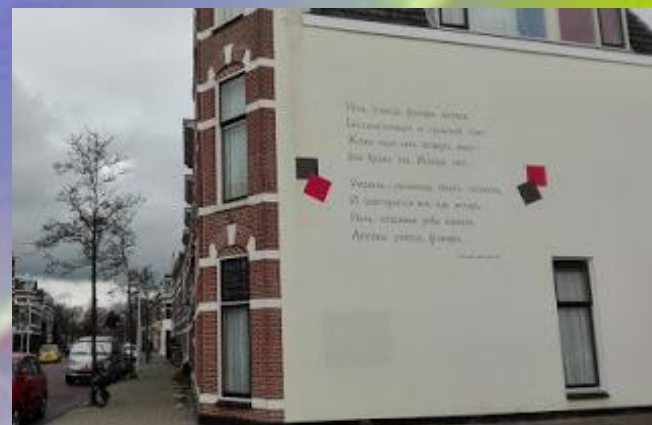 Ночь, улица, фонарь, аптека,
Бессмысленный и тусклый свет.
Живи еще хоть четверть века -
Всё будет так. Исхода нет.
Умрешь - начнешь опять сначала,
И повторится всё, как встарь:
Ночь, ледяная рябь канала,
Аптека, улица, фонарь.